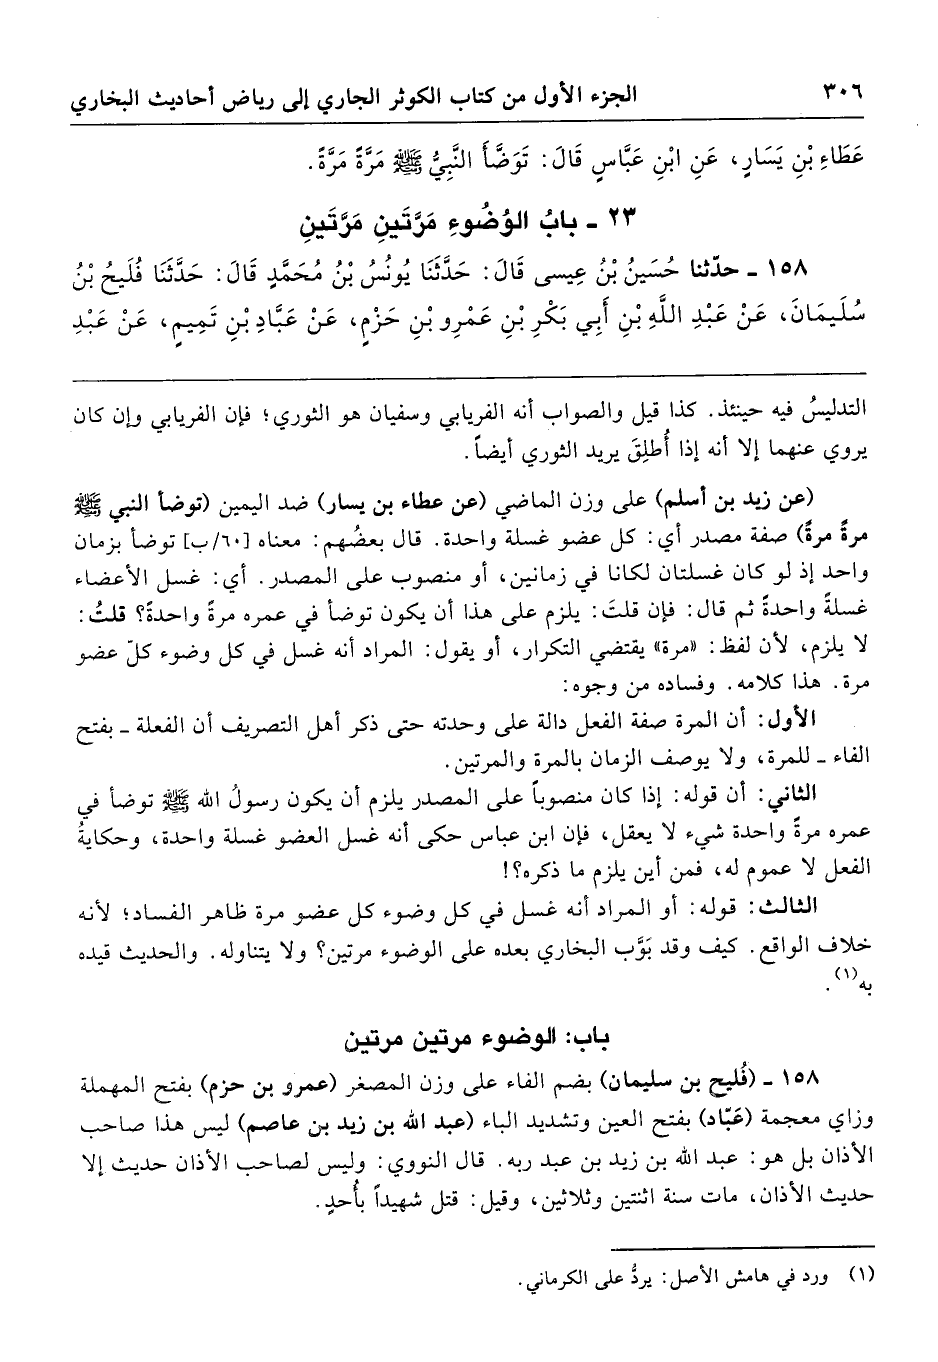 ٣٠٦ الجزء الأول من كتاب الكوثر الجاري إلى رياض أحاديث البخاري
عَطَاءِ بْنِ يَسَارٍ، عَنِ ابْنِ عَبَّاسٍ قَالَ: تَوَضَّأَ النَّبِيُّ ﷺ مَرَّةً مَرَّةً.
٢٣ ـ بابُ الوُضُوءِ مَرَّتَينِ مَرَّتَينِ
١٥٨ ـ حدّثنا حُسَينُ بْنُ عِيسى قَالَ: حَدَّثَنَا يُونُسُ بْنُ مُحَمَّدٍ قَالَ: حَدَّثَنَا فُلَيحُ بْنُ
سُلَيمَانَ، عَنْ عَبْدِ اللَّهِ بْنِ أَبِي بَكْرِ بْنِ عَمْرِو بْنِ حَزْمٍ، عَنْ عَبَّادِ بْنِ تَمِيمٍ، عَنْ عَبْدِ
التدليسُ فيه حينئذ. كذا قيل والصواب أنه الفريابي وسفيان هو الثوري؛ فإن الفريابي وإن كان
يروي عنهما إلا أنه إذا أُطلِقَ يريد الثوري أيضاً.
(عن زيد بن أسلم) على وزن الماضي (عن عطاء بن يسار) ضد اليمين (توضأ النبي ﷺ
مرةً مرةً) صفة مصدر أي: كل عضو غسلة واحدة. قال بعضُهم: معناه [٦٠/ب] توضأ بزمان
واحد إذ لو كان غسلتان لكانا في زمانين، أو منصوب على المصدر. أي: غسل الأعضاء
غسلةً واحدةً ثم قال: فإن قلتَ: يلزم على هذا أن يكون توضأ في عمره مرةً واحدةً؟ قلتُ:
لا يلزم، لأن لفظ: «مرة» يقتضي التكرار، أو يقول: المراد أنه غسل في كل وضوء كلّ عضو
مرة. هذا كلامه. وفساده من وجوه:
الأول: أن المرة صفة الفعل دالة على وحدته حتى ذكر أهل التصريف أن الفعلة ـ بفتح
الفاء ـ للمرة، ولا يوصف الزمان بالمرة والمرتين.
الثاني: أن قوله: إذا كان منصوباً على المصدر يلزم أن يكون رسولُ الله ﷺ توضأ في
عمره مرةً واحدة شيء لا يعقل، فإن ابن عباس حكى أنه غسل العضو غسلة واحدة، وحكايةُ
الفعل لا عموم له، فمن أين يلزم ما ذكره؟!
الثالث: قوله: أو المراد أنه غسل في كل وضوء كل عضو مرة ظاهر الفساد؛ لأنه
خلاف الواقع. كيف وقد بَوَّب البخاري بعده على الوضوء مرتين؟ ولا يتناوله. والحديث قيده
به(١).
باب: الوضوء مرتين مرتين
١٥٨ ـ (فُليح بن سليمان) بضم الفاء على وزن المصغر (عمرو بن حزم) بفتح المهملة
وزاي معجمة (عَبّاد) بفتح العين وتشديد الباء (عبد الله بن زيد بن عاصم) ليس هذا صاحب
الأذان بل هو: عبد الله بن زيد بن عبد ربه. قال النووي: وليس لصاحب الأذان حديث إلا
حديث الأذان، مات سنة اثنتين وثلاثين، وقيل: قتل شهيداً بأُحدٍ.
(١) ورد في هامش الأصل: يردُّ على الكرماني.